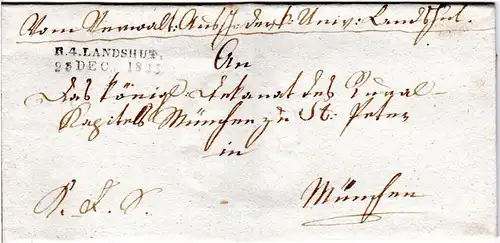 Vom Verwalt: Aussch: der k. Univ: Landshut.
R.4.LANDSHUT.
28 DEC. 182
An
Das königl. Dekanat des Rural-
Kapitels München zu St. Peter
in
München
K. D. S.